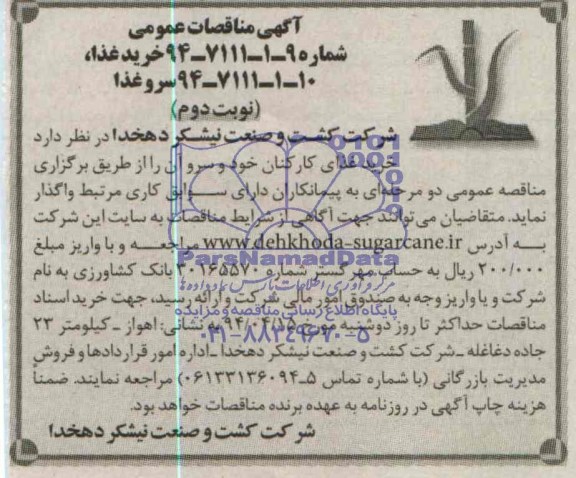 آگهی مناقصات عمومی
شماره ۹-۱-۷۱۱۱-۹۴ خرید غذا،
۱۰-۱-۷۱۱۱-۹۴ سرو غذا
(نوبت دوم)
شرکت کشت و صنعت نیشکر دهخدا در نظر دارد
خرید غذای کارکنان خود و سرو آن را از طریق برگزاری
مناقصه عمومی دو مرحله‌ای به پیمانکاران دارای سوابق کاری مرتبط واگذار
نماید. متقاضیان می‌توانند جهت آگاهی از شرایط مناقصات به سایت این شرکت
به آدرس www.dehkhoda-sugarcane.ir مراجعه و با واریز مبلغ
۲۰۰/۰۰۰ ریال به حساب مهر گستر شماره ۳۰۱۶۵۵۷۰ بانک کشاورزی به نام
شرکت و یا واریز وجه به صندوق امور مالی شرکت و ارائه رسید، جهت خرید اسناد
مناقصات حداکثر تا روز دوشنبه مورخ ۹۴/۰۴/۱۵ به نشانی: اهواز - کیلومتر ۲۳
جاده دغاغله - شرکت کشت و صنعت نیشکر دهخدا - اداره امور قراردادها و فروش
مدیریت بازرگانی (با شماره تماس ۵-۰۶۱۳۳۱۳۶۰۹۴) مراجعه نمایند. ضمناً
هزینه چاپ آگهی در روزنامه به عهده برنده مناقصات خواهد بود.
شرکت کشت و صنعت نیشکر دهخدا
ParsNamadData
مرکز فرآوری اطلاعات پارس نماد داده ها
پایگاه اطلاع رسانی مناقصه و مزایده
۰۲۱-۸۸۳۴۹۶۷۰-۵